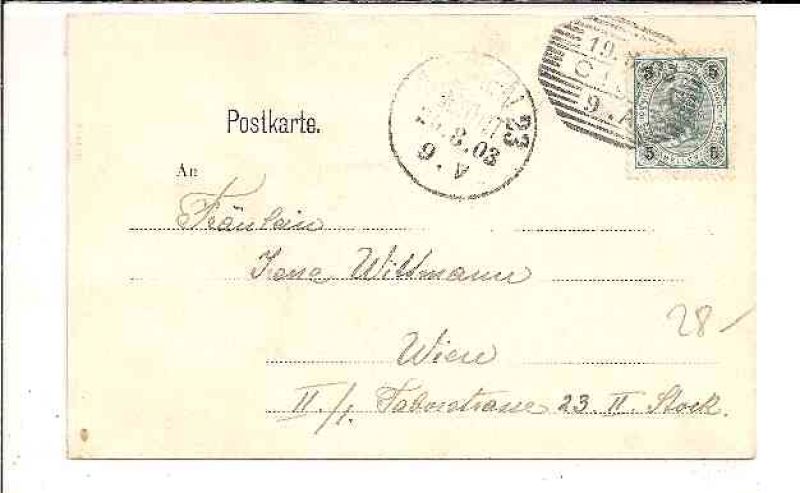 Postkarte.
An
Fräulein
Irena Wittmann
Wien
II./1. Taborstrasse 23. II. Stock.
28-
19.
9.A
23
8.03
9.V
5 5
5 5